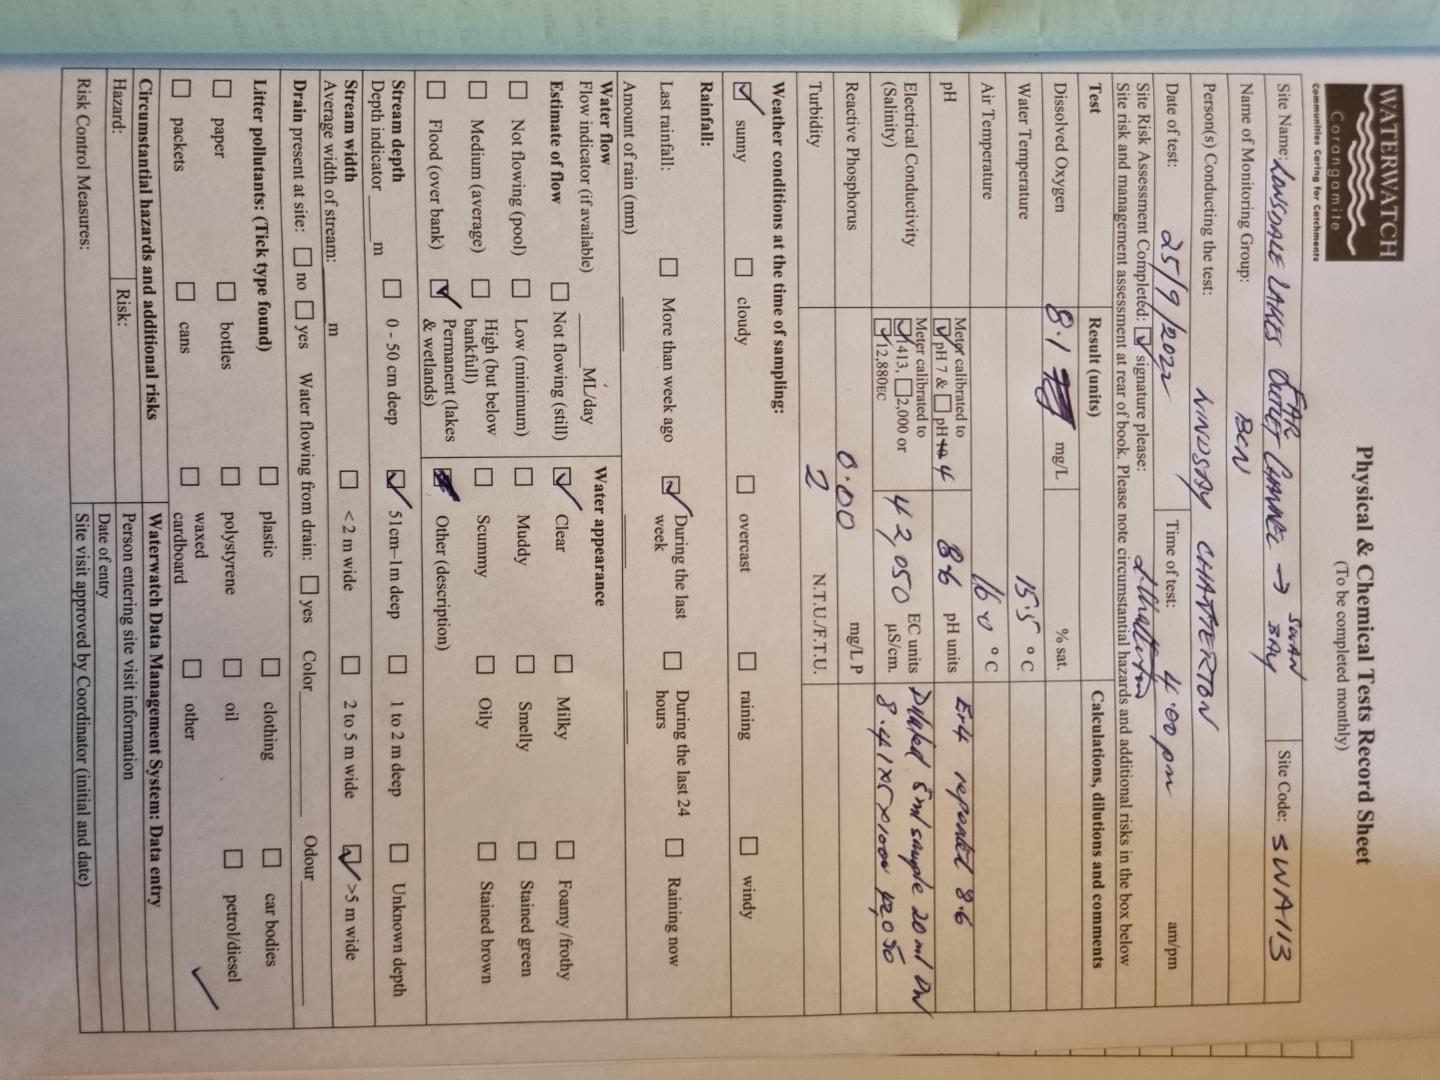 WATERWATCH
Corangamite
Communities Caring for Catchments
Physical & Chemical Tests Record Sheet
(To be completed monthly)
Site Name: LONSDALE LAKES FAR OUTLET CHANNEL → SWAN BAY Site Code: SWA113
Name of Monitoring Group: BCN
Person(s) Conducting the test: LINDSAY CHATTERTON
Date of test: 25/9/2022 Time of test: 4.00 pm am/pm
Site Risk Assessment Completed: signature please:
Site risk and management assessment at rear of book. Please note circumstantial hazards and additional risks in the box below
Test Result (units) Calculations, dilutions and comments
Dissolved Oxygen 8.1 mg/L % sat.
Water Temperature 15.5 °C
Air Temperature 16.0 °C
pH Meter calibrated to pH 7 & pH 4 8.6 pH units reported 8.6
Electrical Conductivity (Salinity) Meter calibrated to 1413, 2,000 or 12,880EC 42,050 EC units µS/cm. Diluted 5ml sample 20ml DW
8.41x5x1000 42,050
Reactive Phosphorus 0.00 mg/L P
Turbidity 2 N.T.U./F.T.U.
Weather conditions at the time of sampling:
sunny cloudy overcast raining windy
Rainfall:
Last rainfall: More than week ago During the last week During the last 24 hours Raining now
Amount of rain (mm)
Water flow
Flow indicator (if available) ML/day
Estimate of flow Not flowing (still)
Not flowing (pool) Low (minimum)
Medium (average) High (but below bankfull)
Flood (over bank) Permanent (lakes & wetlands)
Water appearance
Clear Milky Foamy/frothy
Muddy Smelly Stained green
Scummy Oily Stained brown
Other (description)
Stream depth
Depth indicator m 0 - 50 cm deep 51cm–1m deep 1 to 2 m deep Unknown depth
Stream width
Average width of stream: m < 2 m wide 2 to 5 m wide >5 m wide
Drain present at site: no yes Water flowing from drain: yes Color Odour
Litter pollutants: (Tick type found) plastic clothing car bodies
paper bottles polystyrene oil petrol/diesel
packets cans waxed cardboard other
Circumstantial hazards and additional risks
Hazard: Risk:
Risk Control Measures:
Waterwatch Data Management System: Data entry
Person entering site visit information
Date of entry
Site visit approved by Coordinator (initial and date)